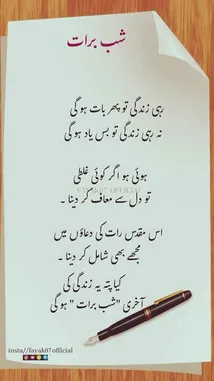 شب برات
رہی زندگی تو پھر بات ہوگی
نہ رہی زندگی تو بس یاد ہوگی
ہوئی ہو اگر کوئی غلطی
FAYAK07 OFFICIAL
تو دل سے معاف کر دینا ۔
اس مقدس رات کی دعاؤں میں
مجھے بھی شامل کر دینا ۔
کیا پتہ یہ زندگی کی
آخری "شب برات" ہوگی
insta//fayak07official